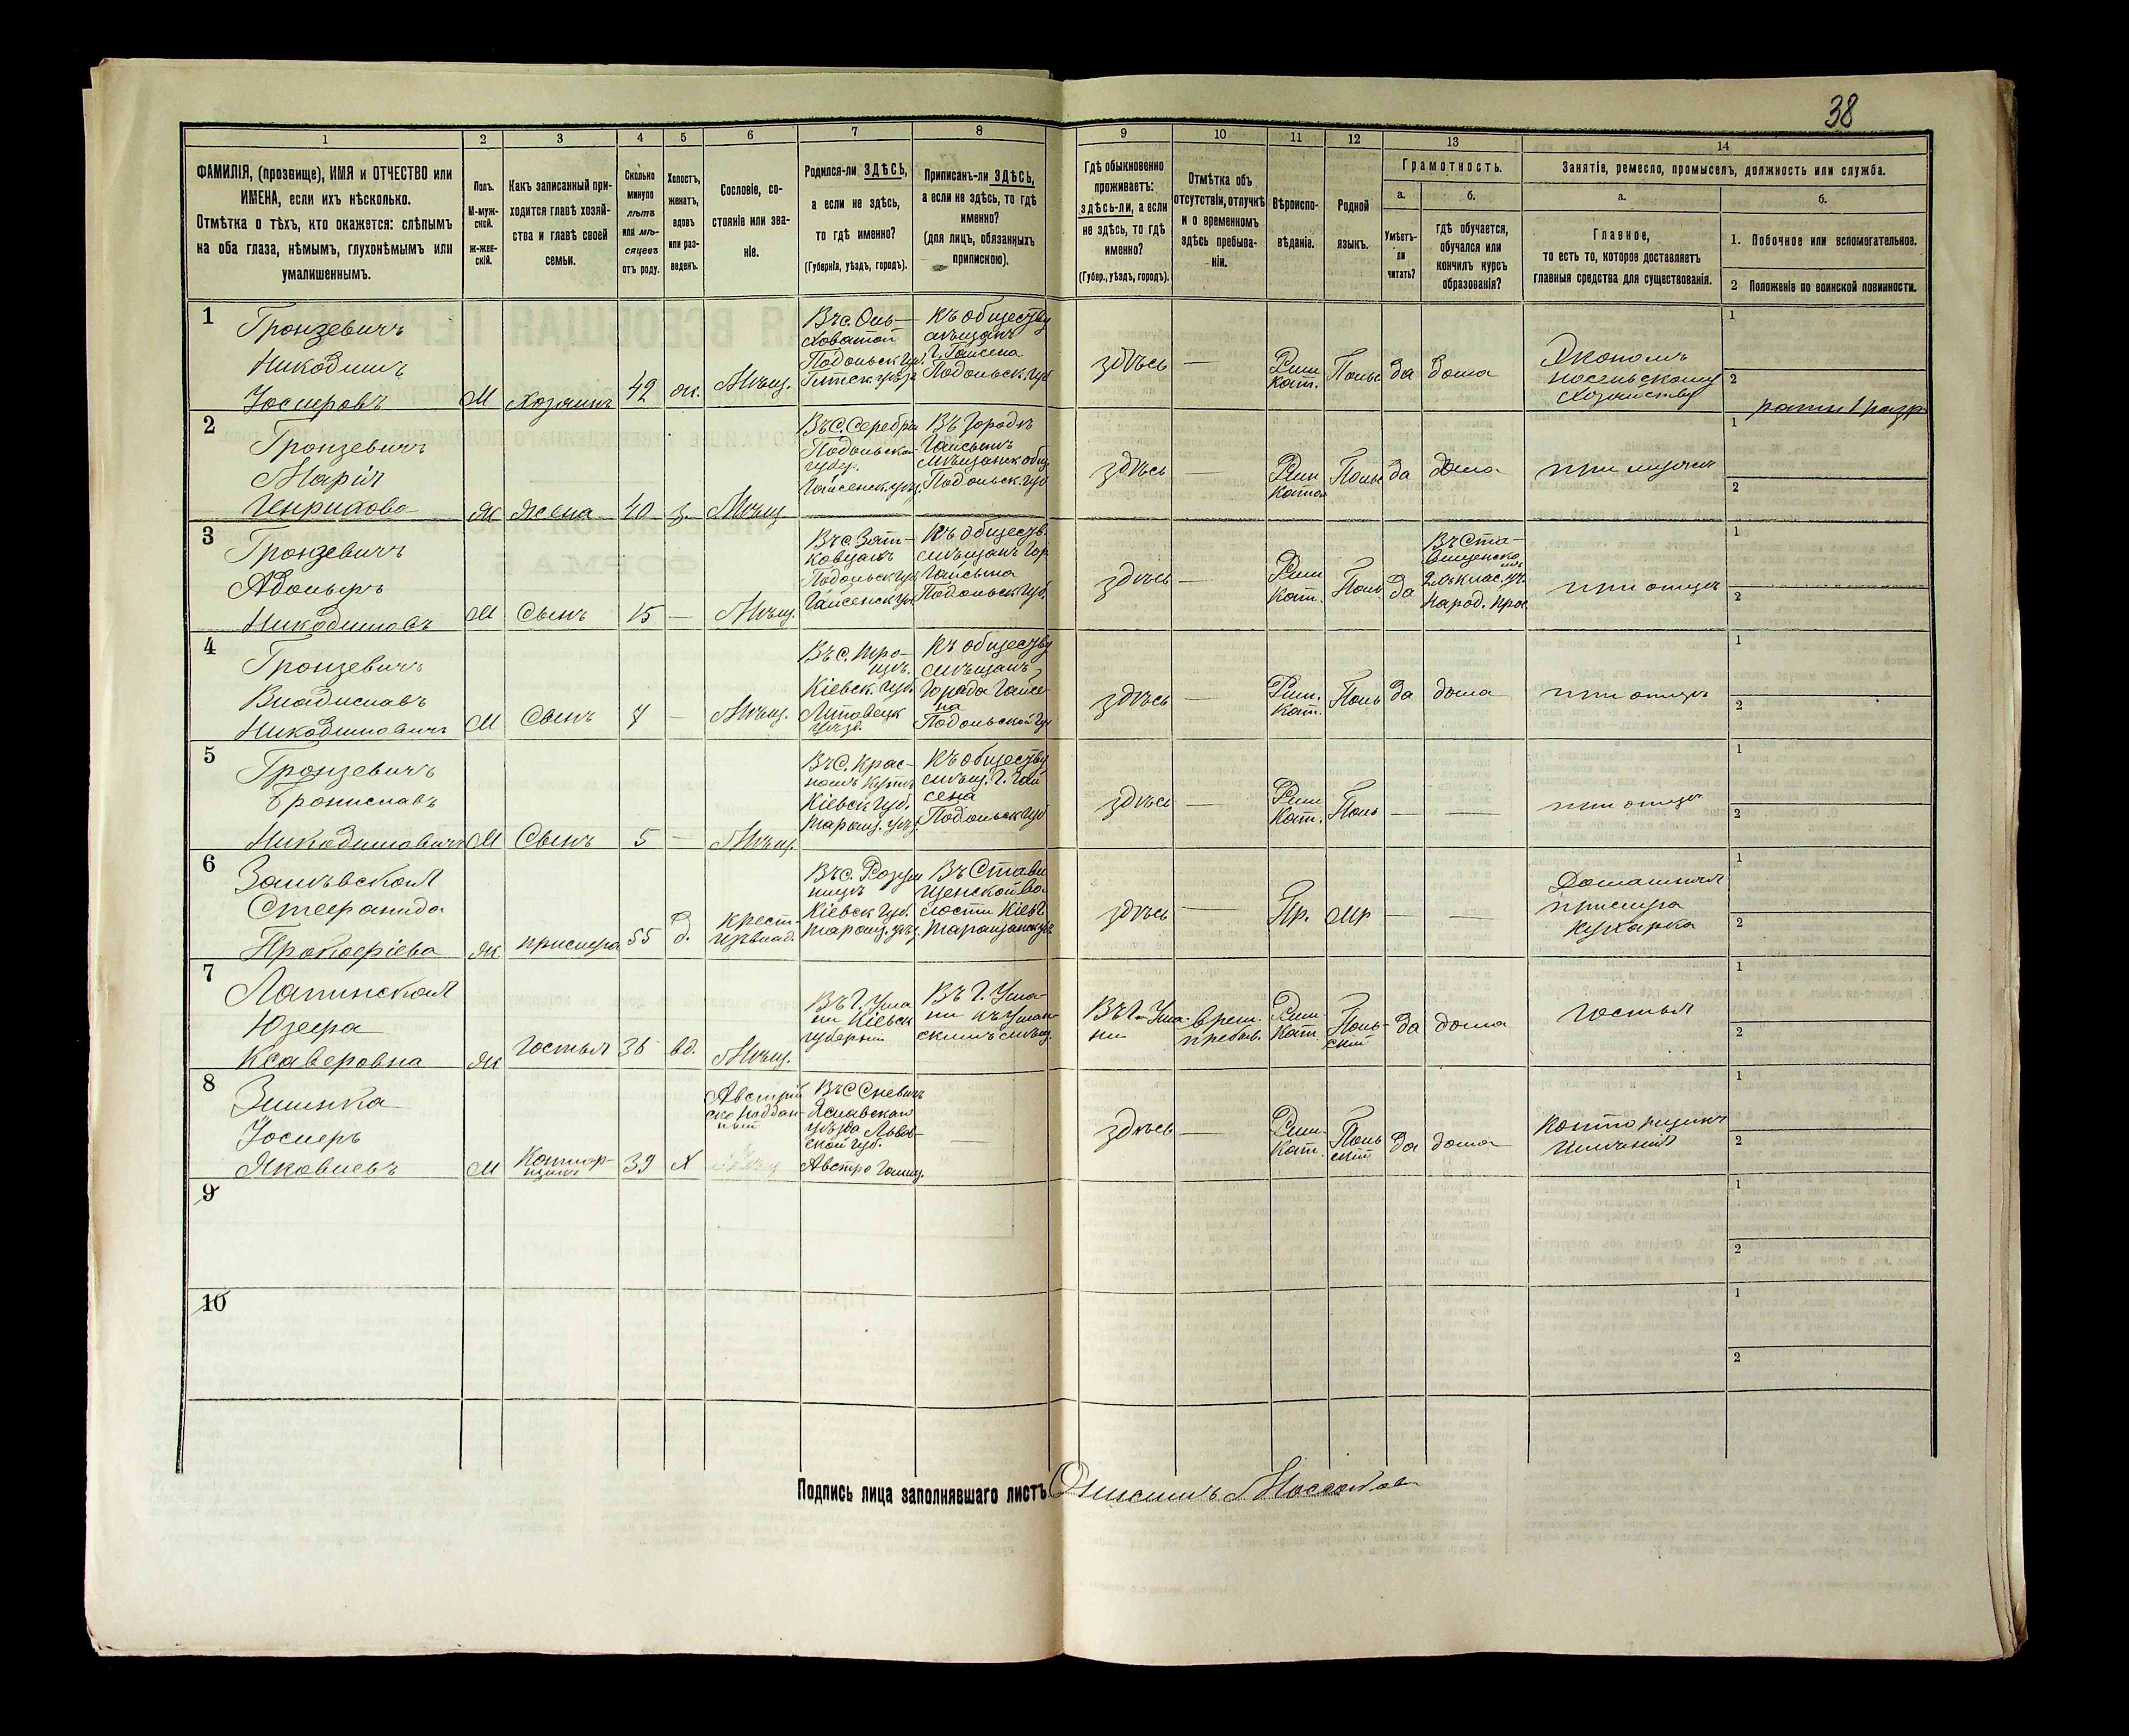 38
1
2
3
4
5
6
7
8
9
10
11
12
13
14
ФАМИЛІЯ, (прозвище), ИМЯ и ОТЧЕСТВО или
ИМЕНА, если ихъ нѣсколько.
Отмѣтка о тѣхъ, кто окажется: слѣпымъ
на оба глаза, нѣмымъ, глухонѣмымъ или
умалишеннымъ.
Полъ.
М-муж-
ской.
ж-жен-
скій.
Какъ записанный при-
ходится главѣ хозяй-
ства и главѣ своей
семьи.
Сколько
минуло
лѣтъ
или мѣ-
сяцевъ
отъ роду.
Холостъ,
женатъ,
вдовъ
или раз-
веденъ.
Сословіе, со-
стояніе или зва-
ніе.
Родился-ли ЗДѢСЬ,
а если не здѣсь,
то гдѣ именно?
(Губернія, уѣздъ, городъ).
Приписанъ-ли ЗДѢСЬ,
а если не здѣсь, то гдѣ
именно?
(для лицъ, обязанныхъ
припискою).
Гдѣ обыкновенно
проживаетъ:
здѣсь-ли, а если
не здѣсь, то гдѣ
именно?
(Губер., уѣздъ, городъ).
Отмѣтка объ
отсутствіи, отлучкѣ
и о временномъ
здѣсь пребыва-
ніи.
Вѣроиспо-
вѣданіе.
Родной
языкъ.
Грамотность.
а.
Умѣетъ-
ли
читать?
б.
гдѣ обучается,
обучался или
кончилъ курсъ
образованія?
Занятіе, ремесло, промыселъ, должность или служба.
а.
Главное,
то есть то, которое доставляетъ
главныя средства для существованія.
б.
1. Побочное или вспомогательное.
2 Положеніе по воинской повинности.
1
Гронзевичъ
Никодимъ
Іосифовъ
М
Хозяинъ
42
ж.
Мѣщ.
Подольск губ.
Къ обществу
мѣщанъ
г. Гайсена
Подольск. губ
здѣсь
—
Рим
Кат.
Польс
да
дома
Экономъ
посельскому
Хозяйству
1
2
ратн 1 разр
2
Гронзевичъ
Марія
Генрихова
Ж
Жена
40
з.
Мѣщ
Подольской
губер.
Гайсенск. уѣз.
Въ городѣ
Гайсынъ
Мѣщанск общ.
Подольск. губ
здѣсь
—
Рим
Катол
Поль
да
дома
при мужѣ
1
2
3
Гронзевичъ
Адольфъ
Никодимовъ
М
Сынъ
15
—
Мѣщ.
Подольск губ
Гайсенск уѣз
Къ обществ.
мѣщанъ гор
Гайсына
Подольск губ.
здѣсь
—
Рим
Кат.
Поль
да
Въ Ста-
вищенско
мъ
2-хъ клас. уч.
Народ. прос
при отцѣ
1
2
4
Гронзевичъ
Владиславъ
Никодимовичъ
М
Сынъ
7
—
Мѣщ.
Кіевск. губ.
Липовецк
уѣзд.
Къ обществу
мѣщанъ
Города Гайсе-
на
Подольской гу
здѣсь
—
Рим.
Кат.
Поль
да
дома
при отцѣ
1
2
5
Гронзевичъ
Брониславъ
Никодимовичъ
М
Сынъ
5
—
Мѣщ.
Въ С. Крас-
номъ Кутѣ
Кіевск губ.
Таращ. уѣз.
Къ обществу
мѣщ. г. Гай
сена
Подольск губ
здѣсь
—
Рим
Кат.
Поль
—
—
при отцѣ
1
2
6
Стефанида
Прокофіева
Ж
прислуга
55
д.
крест.
Кіевск губ.
Таращ. уѣз.
Въ Стави
щенской во-
лости Кіев г
Таращанск уѣз
здѣсь
—
Пр.
Мр
—
—
Домашняя
прислуга
кухарка
1
2
7
Лапинская
Юзефа
Ксаверовна
Ж
Гостья
36
вд.
Мѣщ.
Въ г. Ума
ни Кіевск
губерніи
Въ г. Ума-
ни къ Уман-
скимъ мѣщ.
Въ г. Ума-
ни
врем.
пребыв.
Рим
Кат
Поль-
скій
да
дома
Гостья
1
2
8
Зминка
Іосифъ
Яковлевъ
М
Контор-
щикъ
39
Х
Австрій
ско поддан-
ный
уѣзда Львов-
ской губ.
Австро Галиц.
—
здѣсь
—
Рим.
Кат.
Поль
скій
да
дома
Конторщикъ
Имѣнія
1
2
9
1
2
10
1
2
Подпись лица заполнявшаго листъ